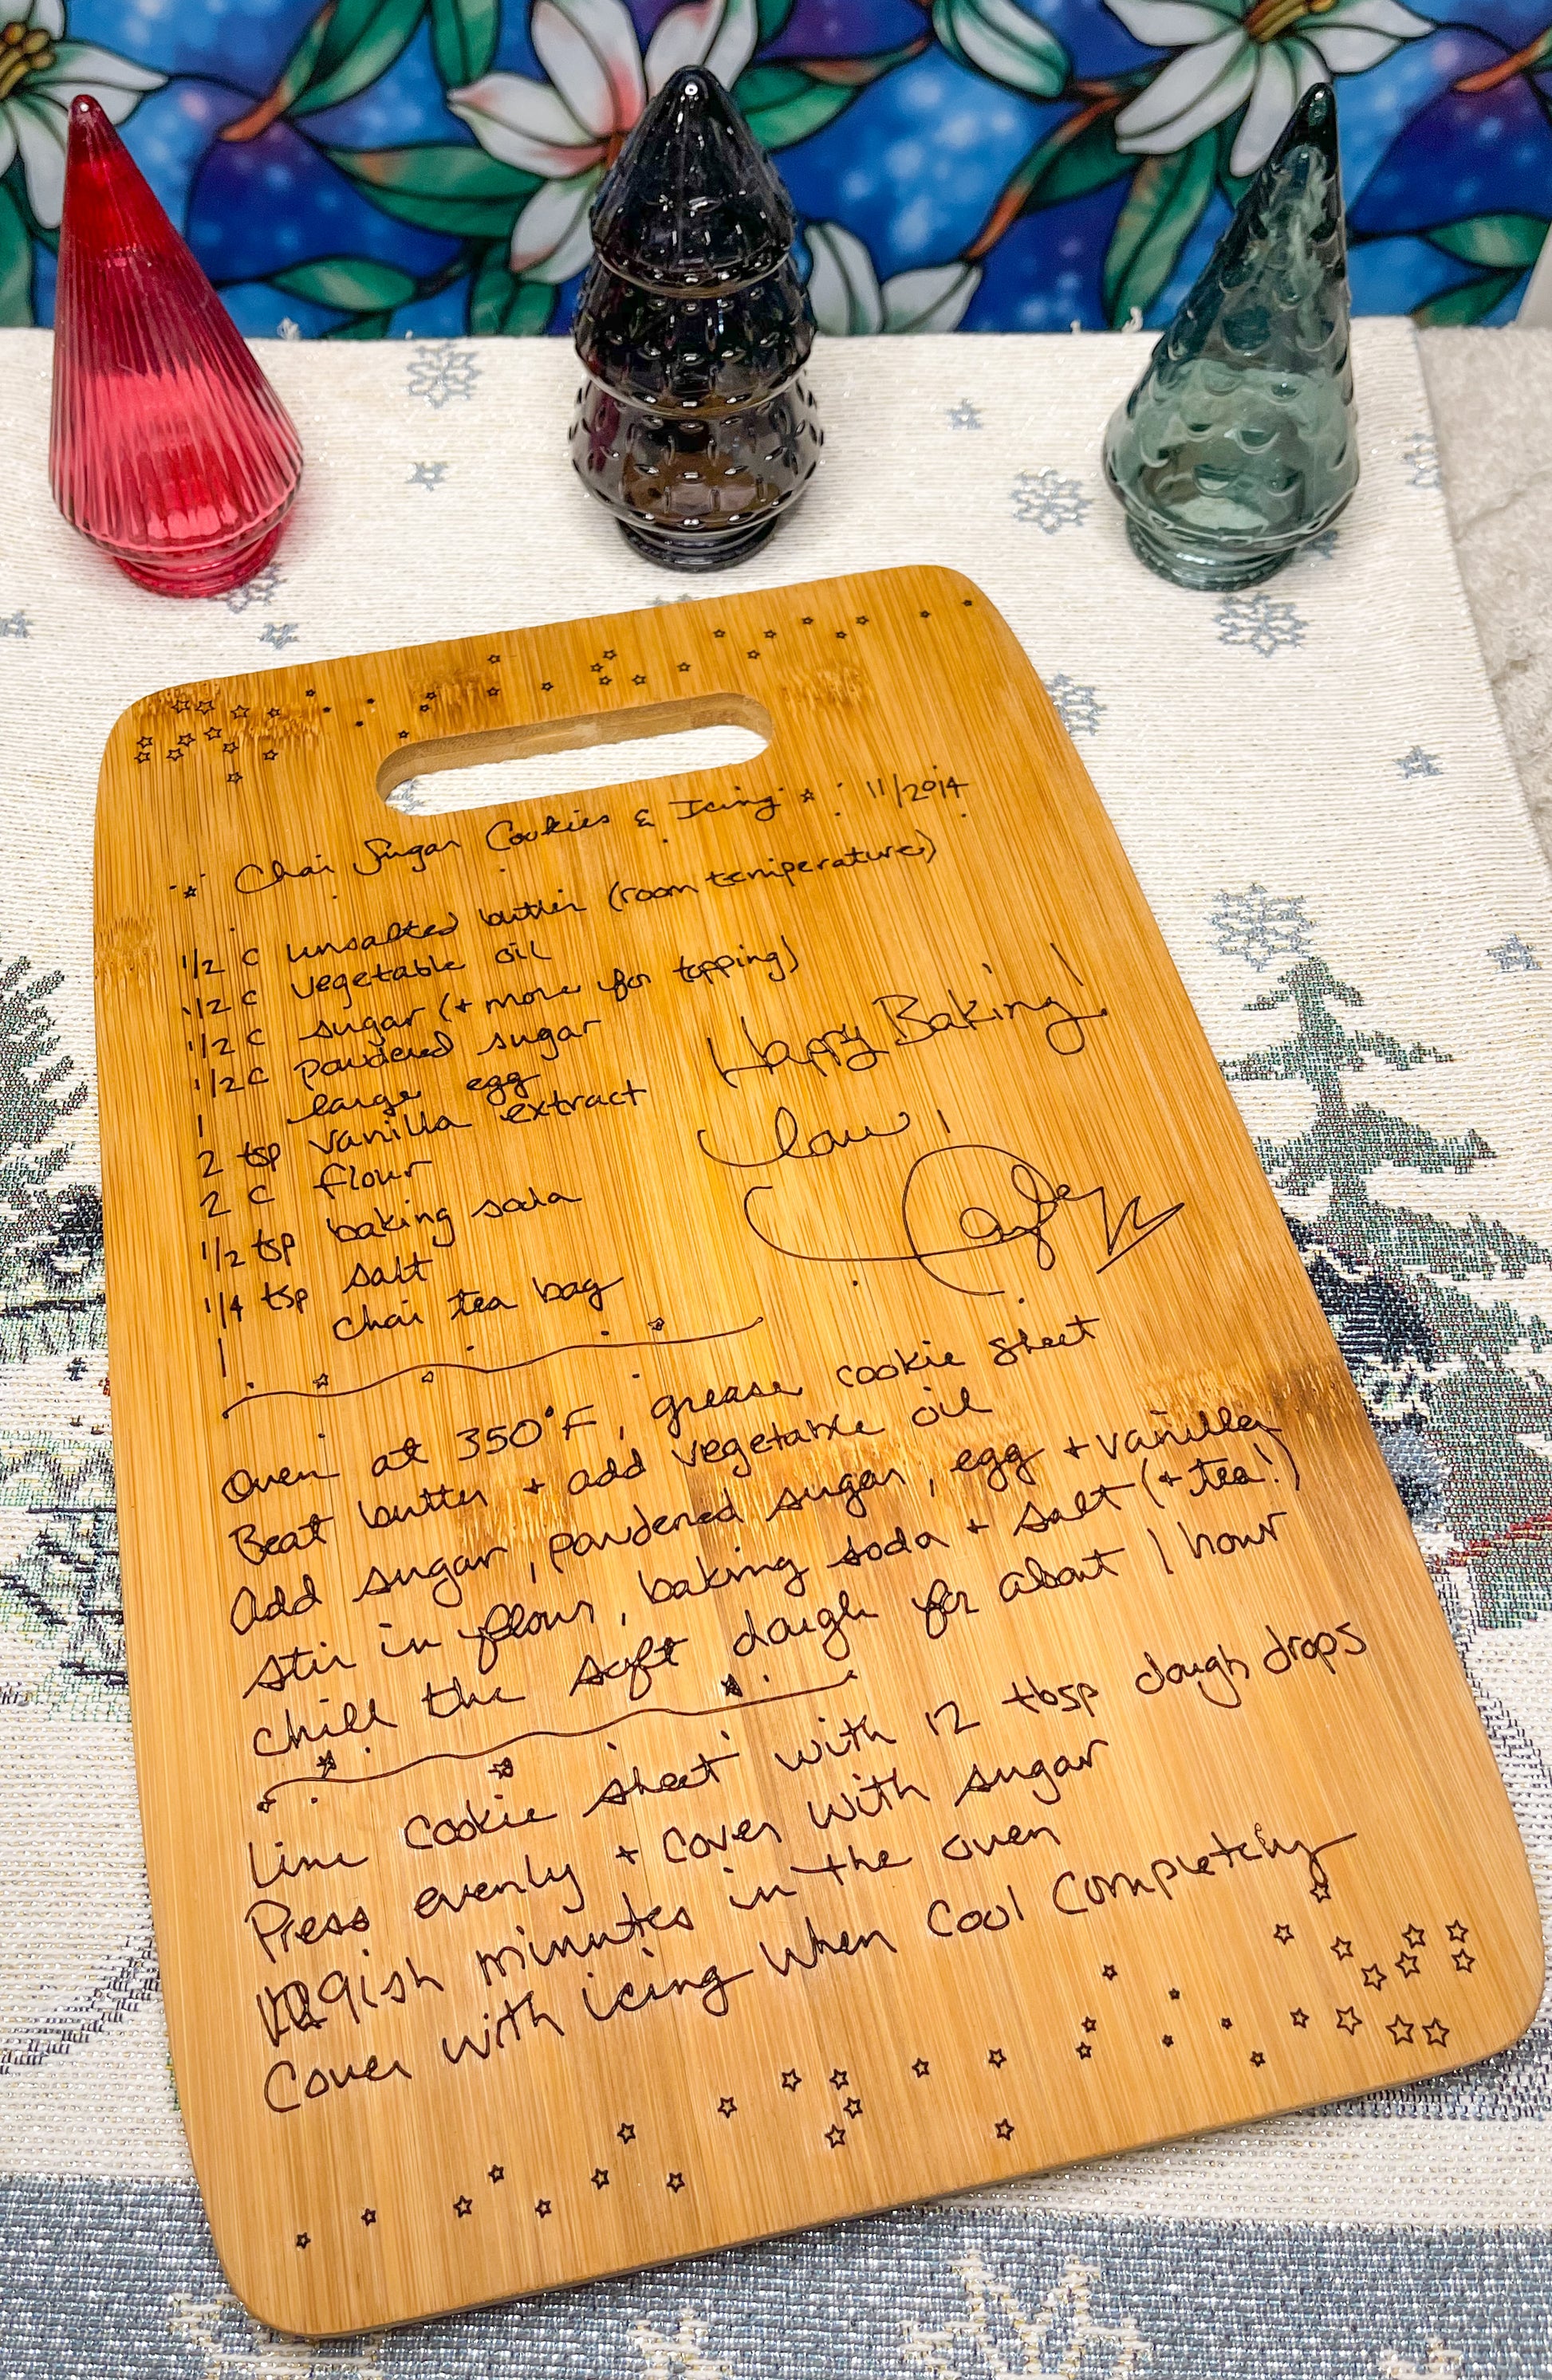 Chai Sugar Cookies & Icing 11/2014
1/2 c unsalted butter (room temperature)
1/2 c vegetable oil
1/2 c sugar (+ more for topping)
1/2 c powdered sugar
1 large egg
2 tsp vanilla extract
2 c flour
1/2 tsp baking soda
1/4 tsp salt
1 chai tea bag
Happy Baking!
Love,
Oven at 350°F, grease cookie sheet
Beat butter + add vegetable oil
Add sugar, powdered sugar, egg + vanilla
stir in flour, baking soda + salt (+ tea!)
chill the soft dough for about 1 hour
Line cookie sheet with 12 tbsp dough drops
Press evenly + cover with sugar
minutes in the oven
Cover with icing when cool completely